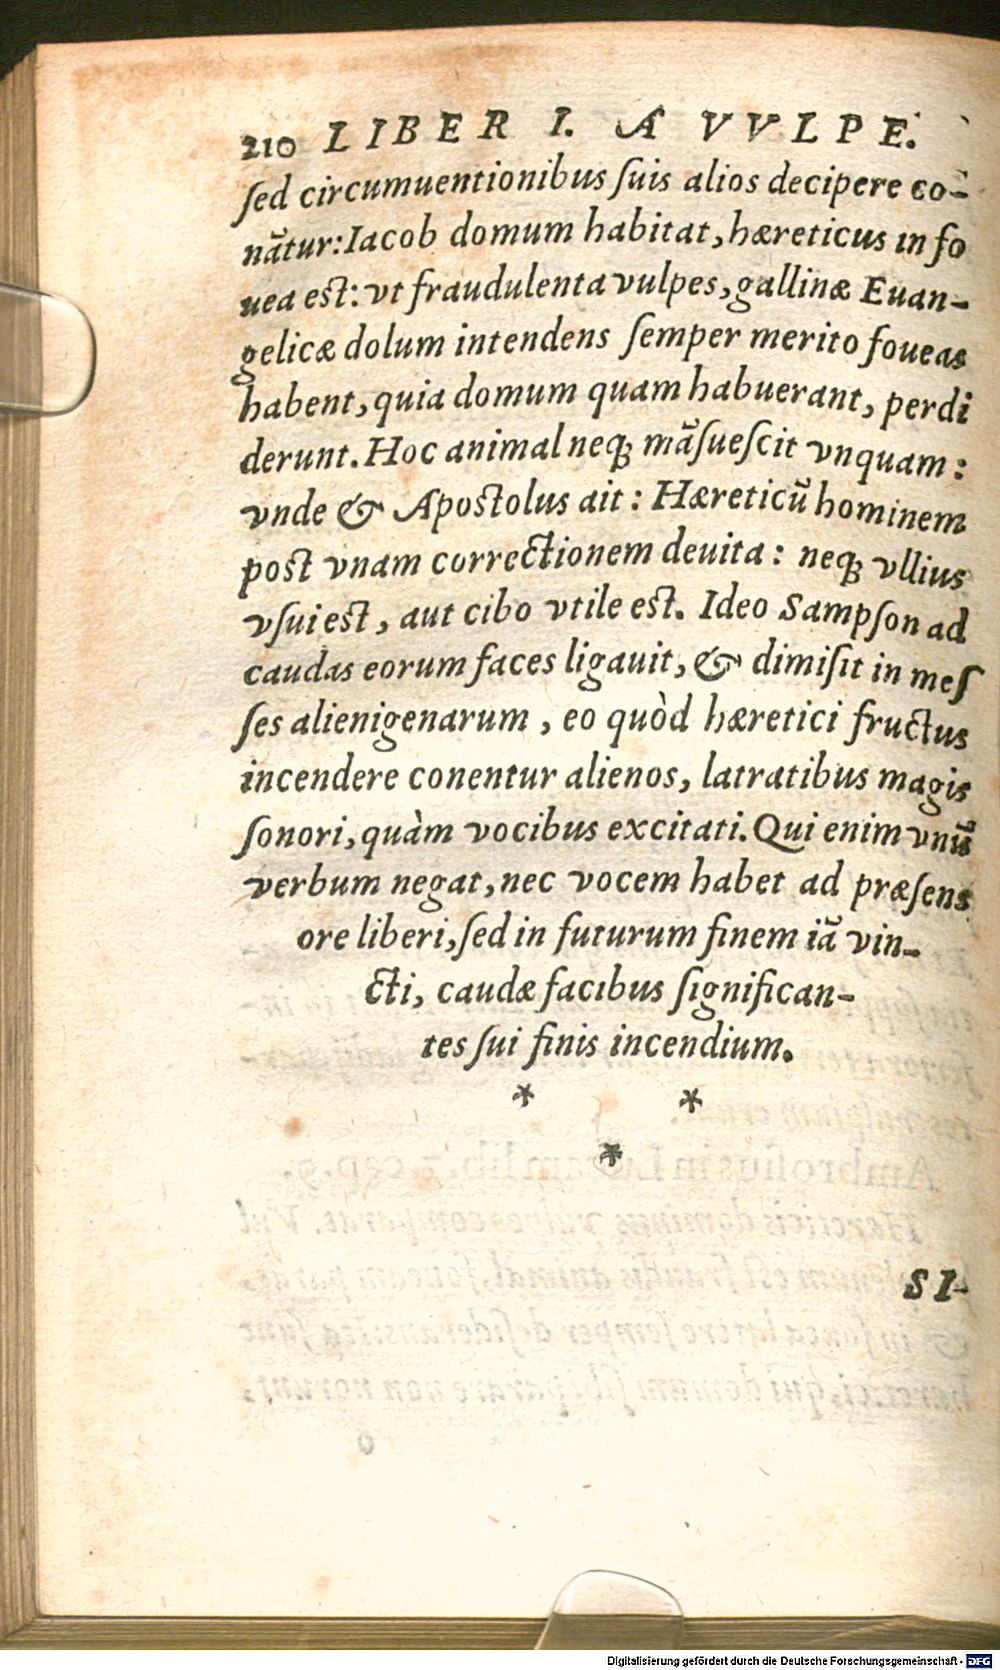 210 LIBER I. A VVLPE.
ſed circumuentionibus ſuis alios decipere co-
nãtur: Iacob domum habitat, hæreticus in fo
uea est: vt fraudulenta vulpes, gallinæ Euan-
gelicæ dolum intendens ſemper merito foueas
habent, quia domum quam habuerant, perdi
derunt. Hoc animal neq; mãſueſcit vnquam:
vnde & Apostolus ait: Hæreticũ hominem
post vnam correctionem deuita: neq; vllius
vſui est, aut cibo vtile est. Ideo Sampſon ad
caudas eorum faces ligauit, & dimiſit in meſ
ſes alienigenarum, eo quòd hæretici fructus
incendere conentur alienos, latratibus magis
ſonori, quàm vocibus excitati. Qui enim vnũ
verbum negat, nec vocem habet ad præſens
ore liberi, ſed in futurum finem iã vin-
cti, caudæ facibus ſignifican-
tes ſui finis incendium.
* *
*
SI-
Digitalisierung gefördert durch die Deutsche Forschungsgemeinschaft - DFG